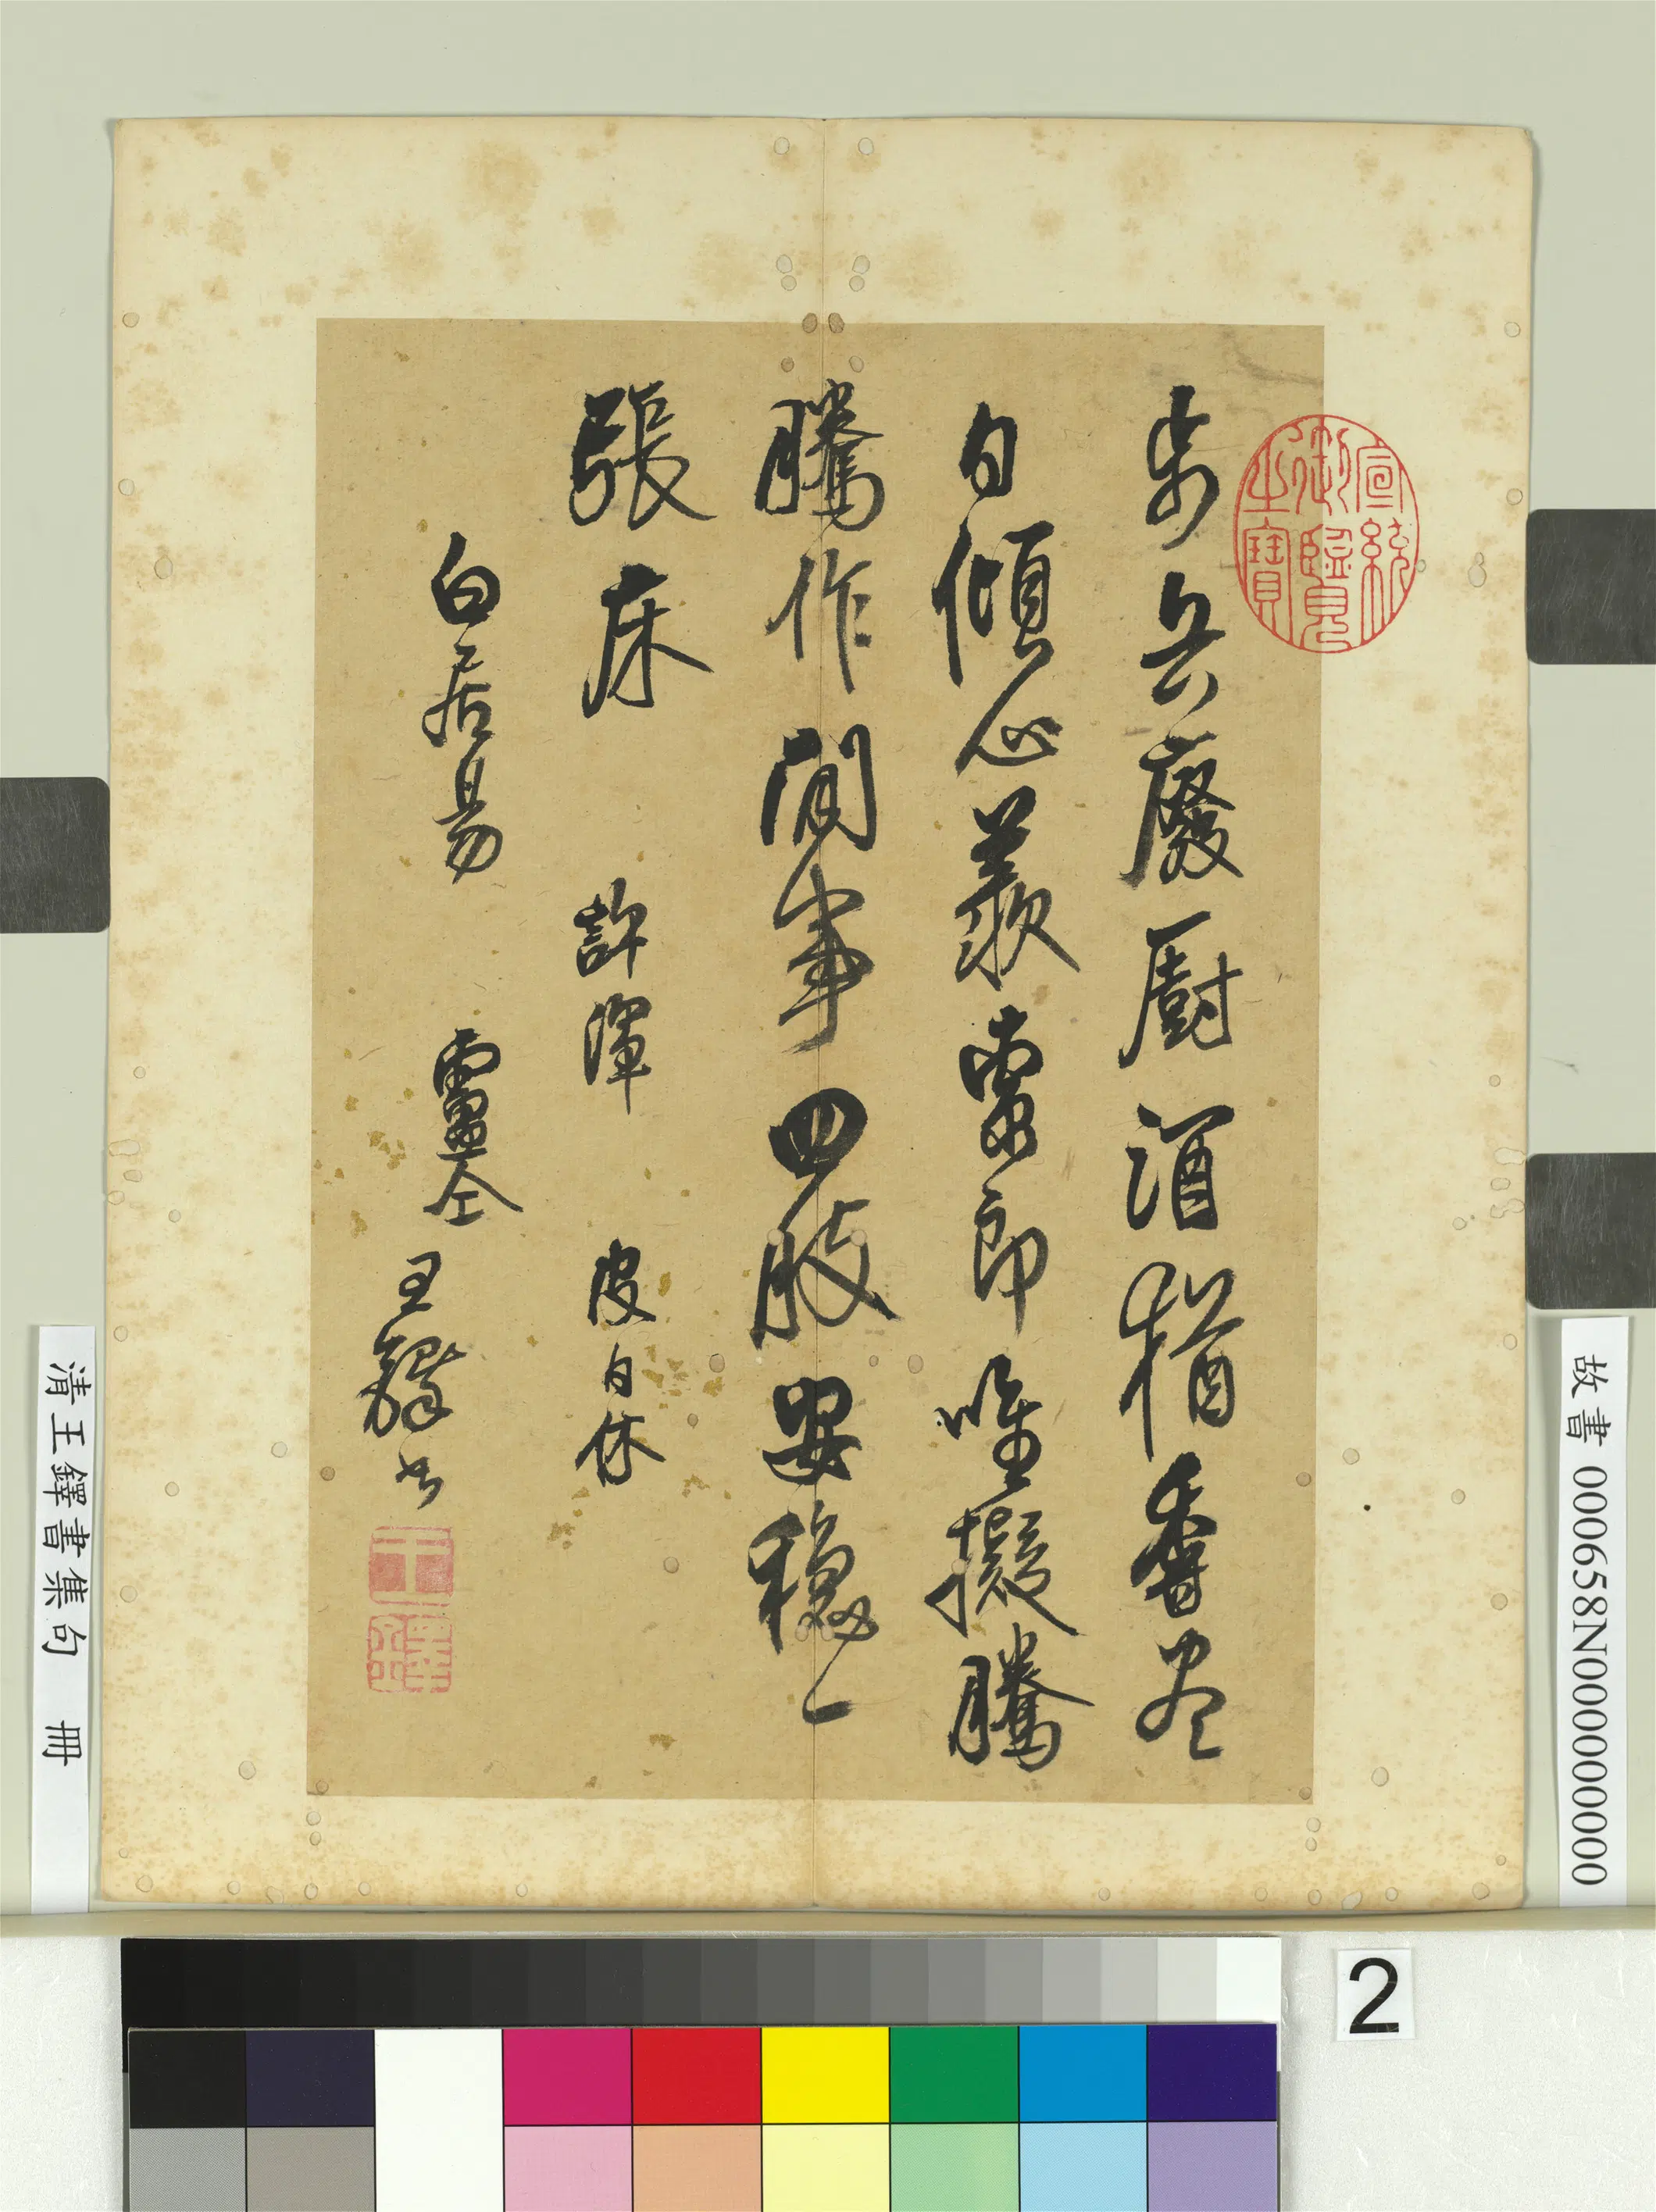 宣統
御覽
之寶
步兵廢廚酒猶香盡
日傾心羨索郎唯擬騰
騰作閒事四肢安穩一
張床 許渾 皮日休
白居易 盧仝
王鐸書
王鐸
故書 000658N000000000
清王鐸書集句 冊
2